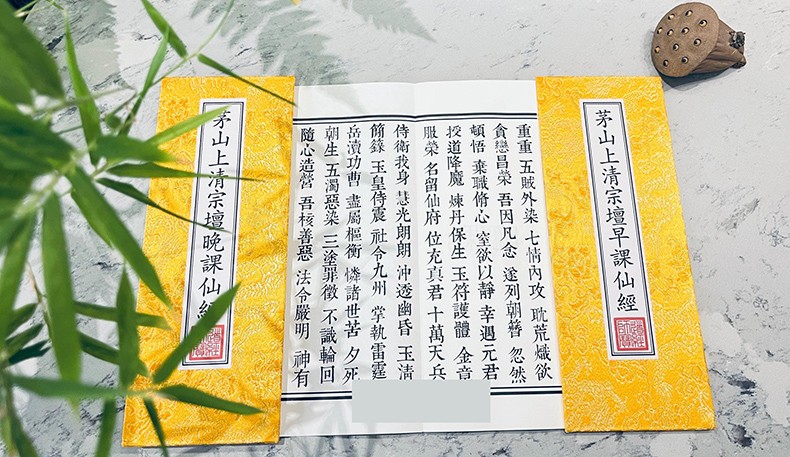 茅山上清宗壇早課仙經
重重 五賊外染 七情內攻 耽荒熾欲
貪戀昌榮 吾因凡念 遂列朝簪 忽然
頓悟 棄職脩心 窒欲以靜 幸遇元君
授道降魔 煉丹保生 玉符護體 金章
服榮 名留仙府 位充真君 十萬天兵
侍衛我身 慧光朗朗 沖透幽昏 玉清
簡錄 玉皇侍震 社令九州 掌執雷霆
岳瀆功曹 盡屬樞衡 憐諸世苦 夕死
朝生 五濁惡染 三塗罪徵 不識輪回
隨心造營 吾核善惡 法令嚴明 神有
茅山上清宗壇晚課仙經